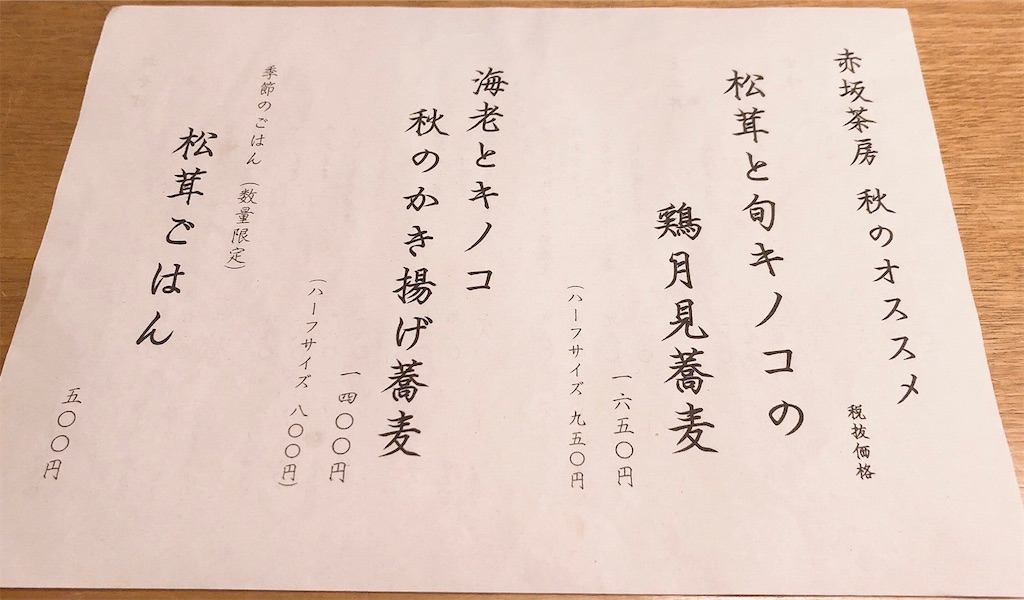 赤坂茶房 秋のオススメ
税抜価格
松茸と旬キノコの
鶏月見蕎麦
一六五〇円
(ハーフサイズ 九五〇円
海老とキノコ
秋のかき揚げ蕎麦
一四〇〇円
(ハーフサイズ 八〇〇円)
季節のごはん (数量限定)
松茸ごはん
五〇〇円